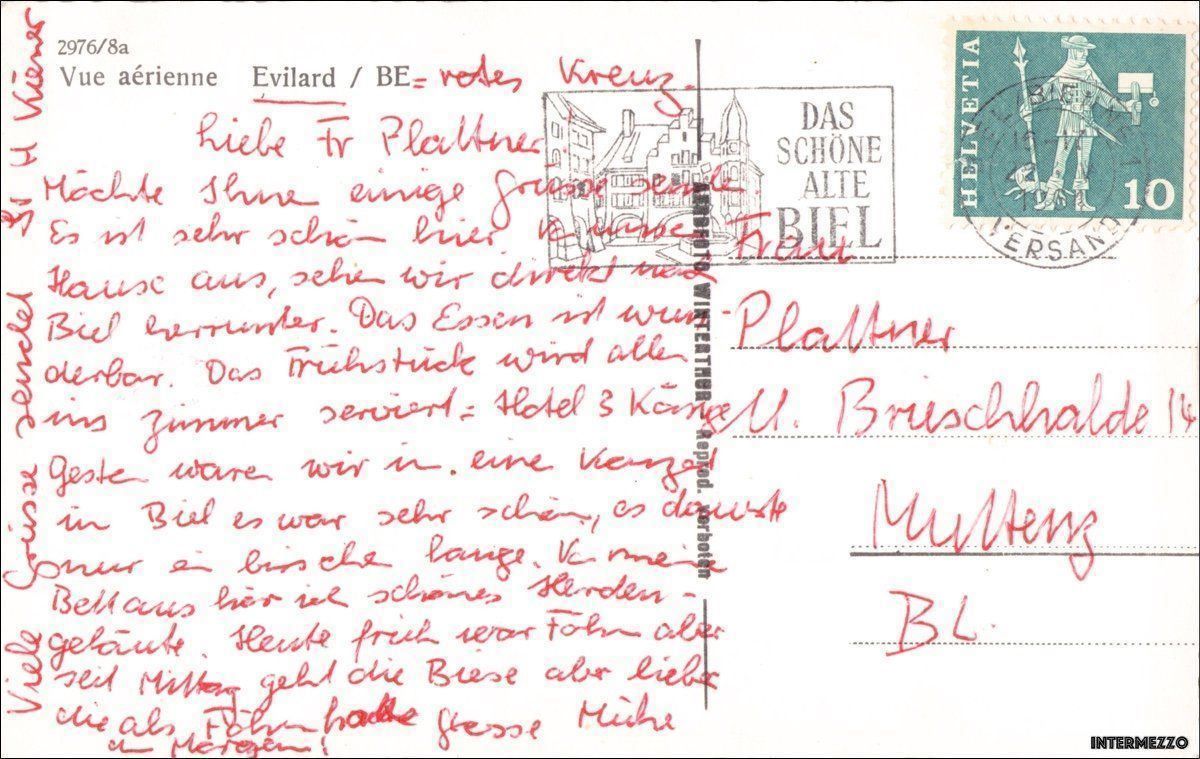 2976/8a
Vue aérienne Evilard / BE = rotes Kreuz.
Liebe Fr Plattner
Möchte Ihnen einige Grüsse sende.
Es ist sehr schön hier. V. unserem
Hause aus, sehen wir direkt nach
Biel herrunter. Das Essen ist wun-
derbar. Das Frühstück wird allen
ins Zimmer serviert = Hotel 3
Gestern waren wir in. eine Konzert
in Biel es war sehr schön, es dauerte
nur ein bische lange. V. meine
Bett aus hör ich schönes Herden-
geläute. Heute früh war Föhn aber
seit Mittag geht die Biese aber lieber
die als Föhn hatte grosse Mühe
am Morgen!
Viele Grüsse sendet M Kiener
HELVETIA
10
DAS
SCHÖNE
ALTE
BIEL
BIEL
VERSAND
WINTERTHUR Reprod. verboten
Frau
Plattner
U. Brieschhalde 14
Muttenz
BL.
INTERMEZZO